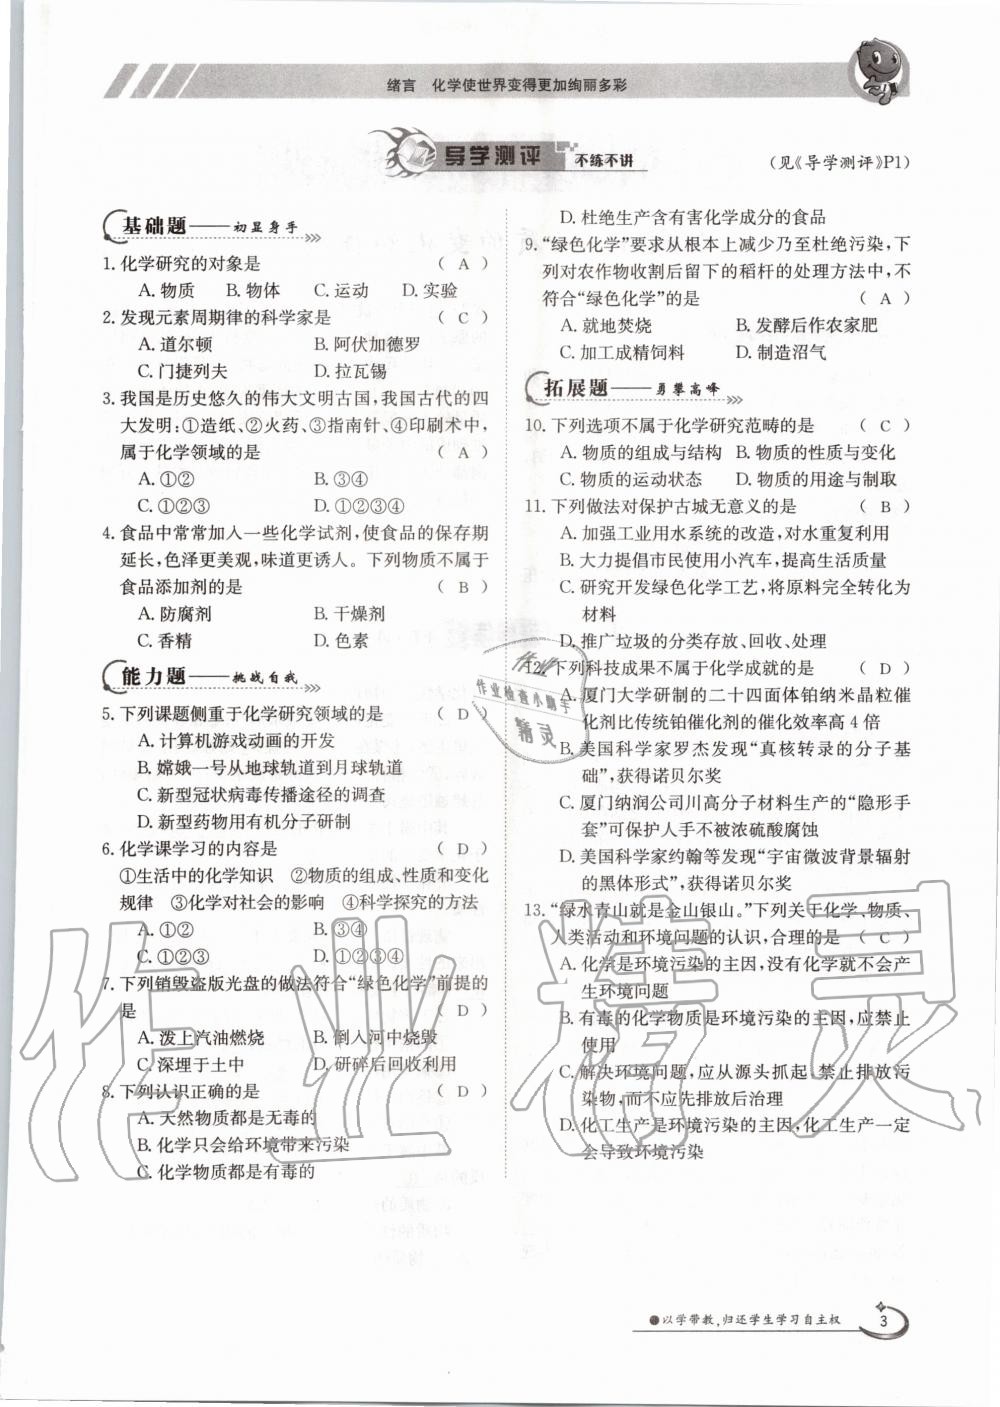 绪言 化学使世界变得更加绚丽多彩
导学测评 不练不讲
(见《导学测评》P1)
基础题——初显身手
1. 化学研究的对象是 ( A )
A. 物质 B. 物体 C. 运动 D. 实验
2. 发现元素周期律的科学家是 ( C )
A. 道尔顿 B. 阿伏加德罗
C. 门捷列夫 D. 拉瓦锡
3. 我国是历史悠久的伟大文明古国,我国古代的四
大发明:①造纸、②火药、③指南针、④印刷术中,
属于化学领域的是 ( A )
A. ①② B. ③④
C. ①②③ D. ①②③④
4. 食品中常常加入一些化学试剂,使食品的保存期
延长,色泽更美观,味道更诱人。下列物质不属于
食品添加剂的是 ( B )
A. 防腐剂 B. 干燥剂
C. 香精 D. 色素
能力题——挑战自我
5. 下列课题侧重于化学研究领域的是 ( D )
A. 计算机游戏动画的开发
B. 嫦娥一号从地球轨道到月球轨道
C. 新型冠状病毒传播途径的调查
D. 新型药物用有机分子研制
6. 化学课学习的内容是 ( D )
①生活中的化学知识 ②物质的组成、性质和变化
规律 ③化学对社会的影响 ④科学探究的方法
A. ①② B. ③④
C. ①②③ D. ①②③④
7. 下列销毁盗版光盘的做法符合“绿色化学”前提的
是 ( D )
A. 泼上汽油燃烧 B. 倒入河中烧毁
C. 深埋于土中 D. 研碎后回收利用
8. 下列认识正确的是 ( D )
A. 天然物质都是无毒的
B. 化学只会给环境带来污染
C. 化学物质都是有毒的
D. 杜绝生产含有害化学成分的食品
9. “绿色化学”要求从根本上减少乃至杜绝污染,下
列对农作物收割后留下的稻杆的处理方法中,不
符合“绿色化学”的是 ( A )
A. 就地焚烧 B. 发酵后作农家肥
C. 加工成精饲料 D. 制造沼气
拓展题——勇攀高峰
10. 下列选项不属于化学研究范畴的是 ( C )
A. 物质的组成与结构 B. 物质的性质与变化
C. 物质的运动状态 D. 物质的用途与制取
11. 下列做法对保护古城无意义的是 ( B )
A. 加强工业用水系统的改造,对水重复利用
B. 大力提倡市民使用小汽车,提高生活质量
C. 研究开发绿色化学工艺,将原料完全转化为
材料
D. 推广垃圾的分类存放、回收、处理
12. 下列科技成果不属于化学成就的是 ( D )
A. 厦门大学研制的二十四面体铂纳米晶粒催
化剂比传统铂催化剂的催化效率高 4 倍
B. 美国科学家罗杰发现“真核转录的分子基
础”,获得诺贝尔奖
C. 厦门纳润公司川高分子材料生产的“隐形手
套”可保护人手不被浓硫酸腐蚀
D. 美国科学家约翰等发现“宇宙微波背景辐射
的黑体形式”,获得诺贝尔奖
13. “绿水青山就是金山银山。”下列关于化学、物质、
人类活动和环境问题的认识,合理的是 ( C )
A. 化学是环境污染的主因,没有化学就不会产
生环境问题
B. 有毒的化学物质是环境污染的主因,应禁止
使用
C. 解决环境问题,应从源头抓起 禁止排放污
染物,而不应先排放后治理
D. 化工生产是环境污染的主因,化工生产一定
会导致环境污染
作业
作业检查小助手
精灵
作业精灵
●以学带教,归还学生学习自主权 3